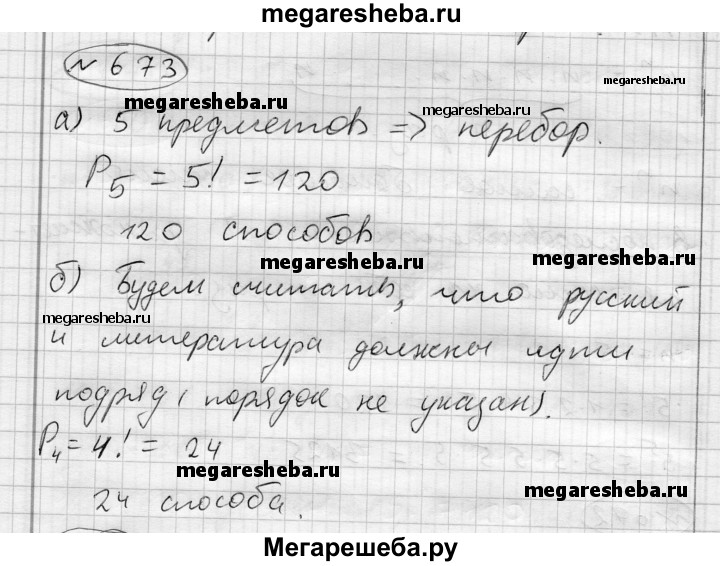 megaresheba.ru
№ 673
megaresheba.ru
megaresheba.ru
megaresheba.ru
а) 5 предметов => перебор.
P5 = 5! = 120
120 способов
megaresheba.ru
megaresheba.ru
б) Будем считать, что русский
megaresheba.ru
и литература должны идти
подряд (порядок не указан).
P4 = 4! = 24
megaresheba.ru
24 способа.
megaresheba.ru
Мегарешеба.ру